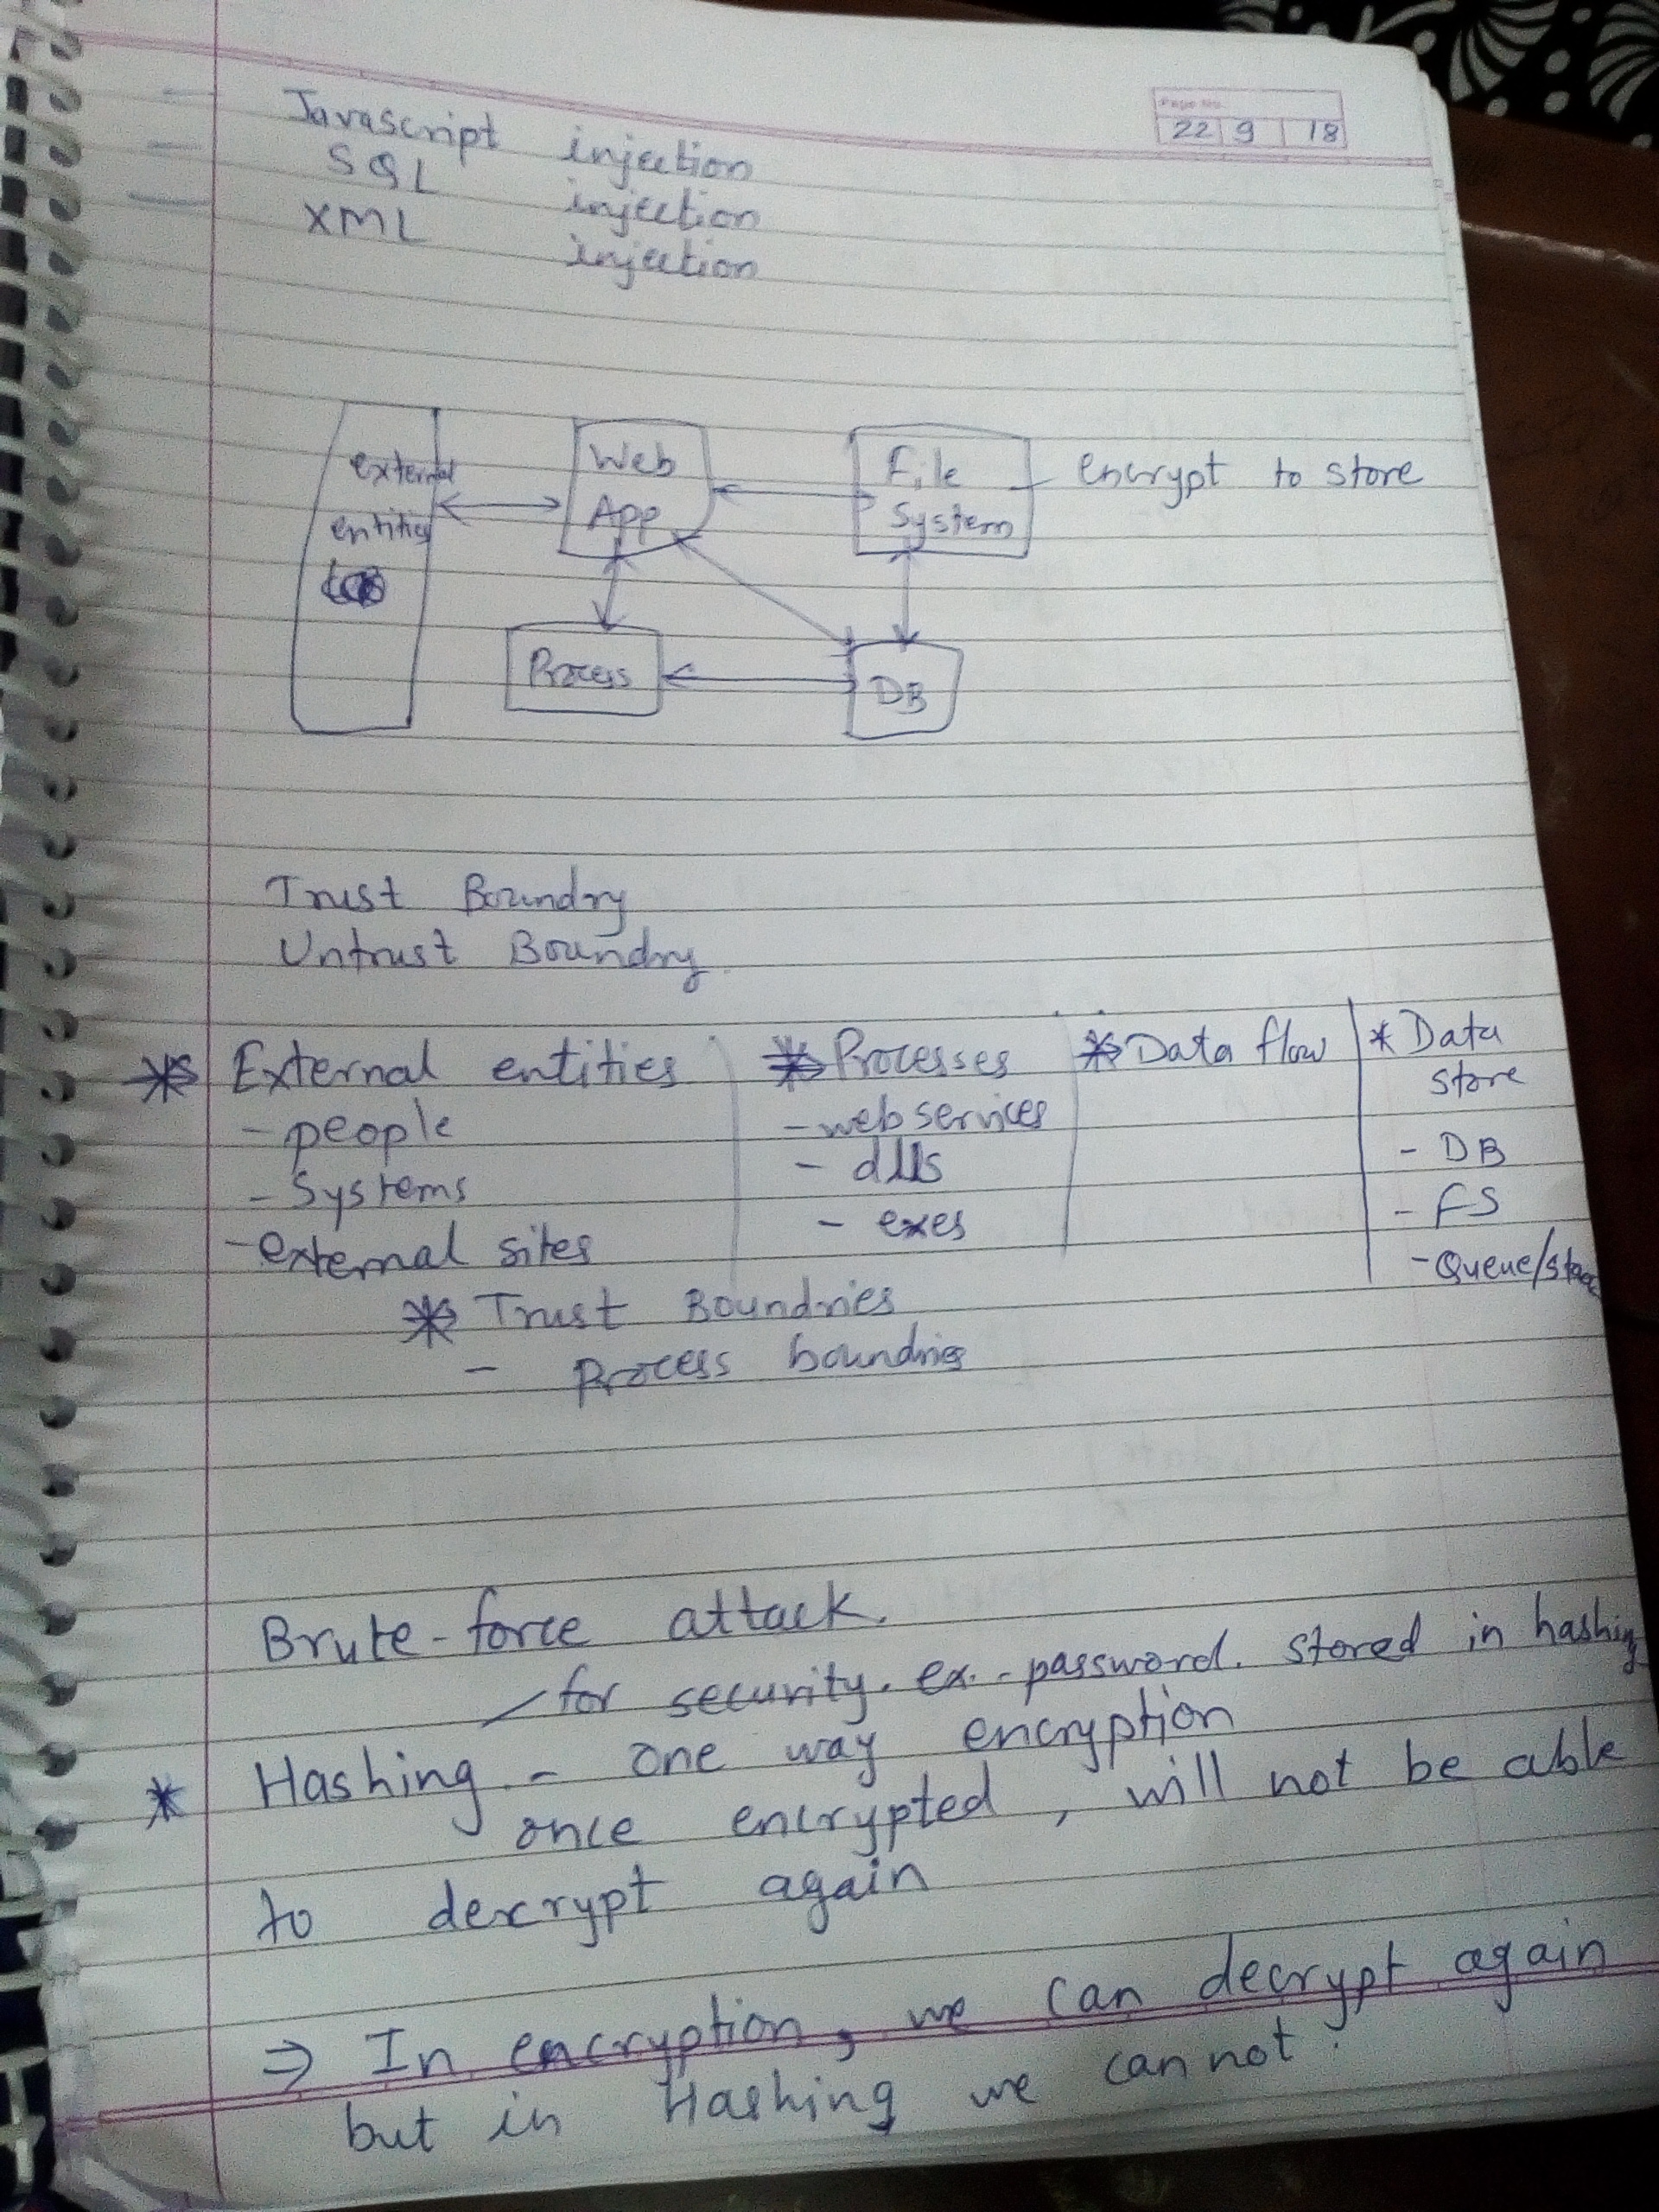 Page No.
22 9 18
Javascript injection
SQL injection
XML injection
external
entities
Web
App
File
System
encrypt to store
Process
DB
Trust Boundry
Untrust Boundry
* External entities
- people
- Systems
- external sites
* Processes
- web services
- dlls
- exes
* Data flow
* Data
store
- DB
- FS
- Queue/
* Trust Boundries
- Process boundries
Brute-force attack.
for security. ex. - password. stored in hashing
* Hashing - one way encryption
once encrypted, will not be able
to decrypt again
⇒ In encryption, we can decrypt again
but in Hashing we cannot.